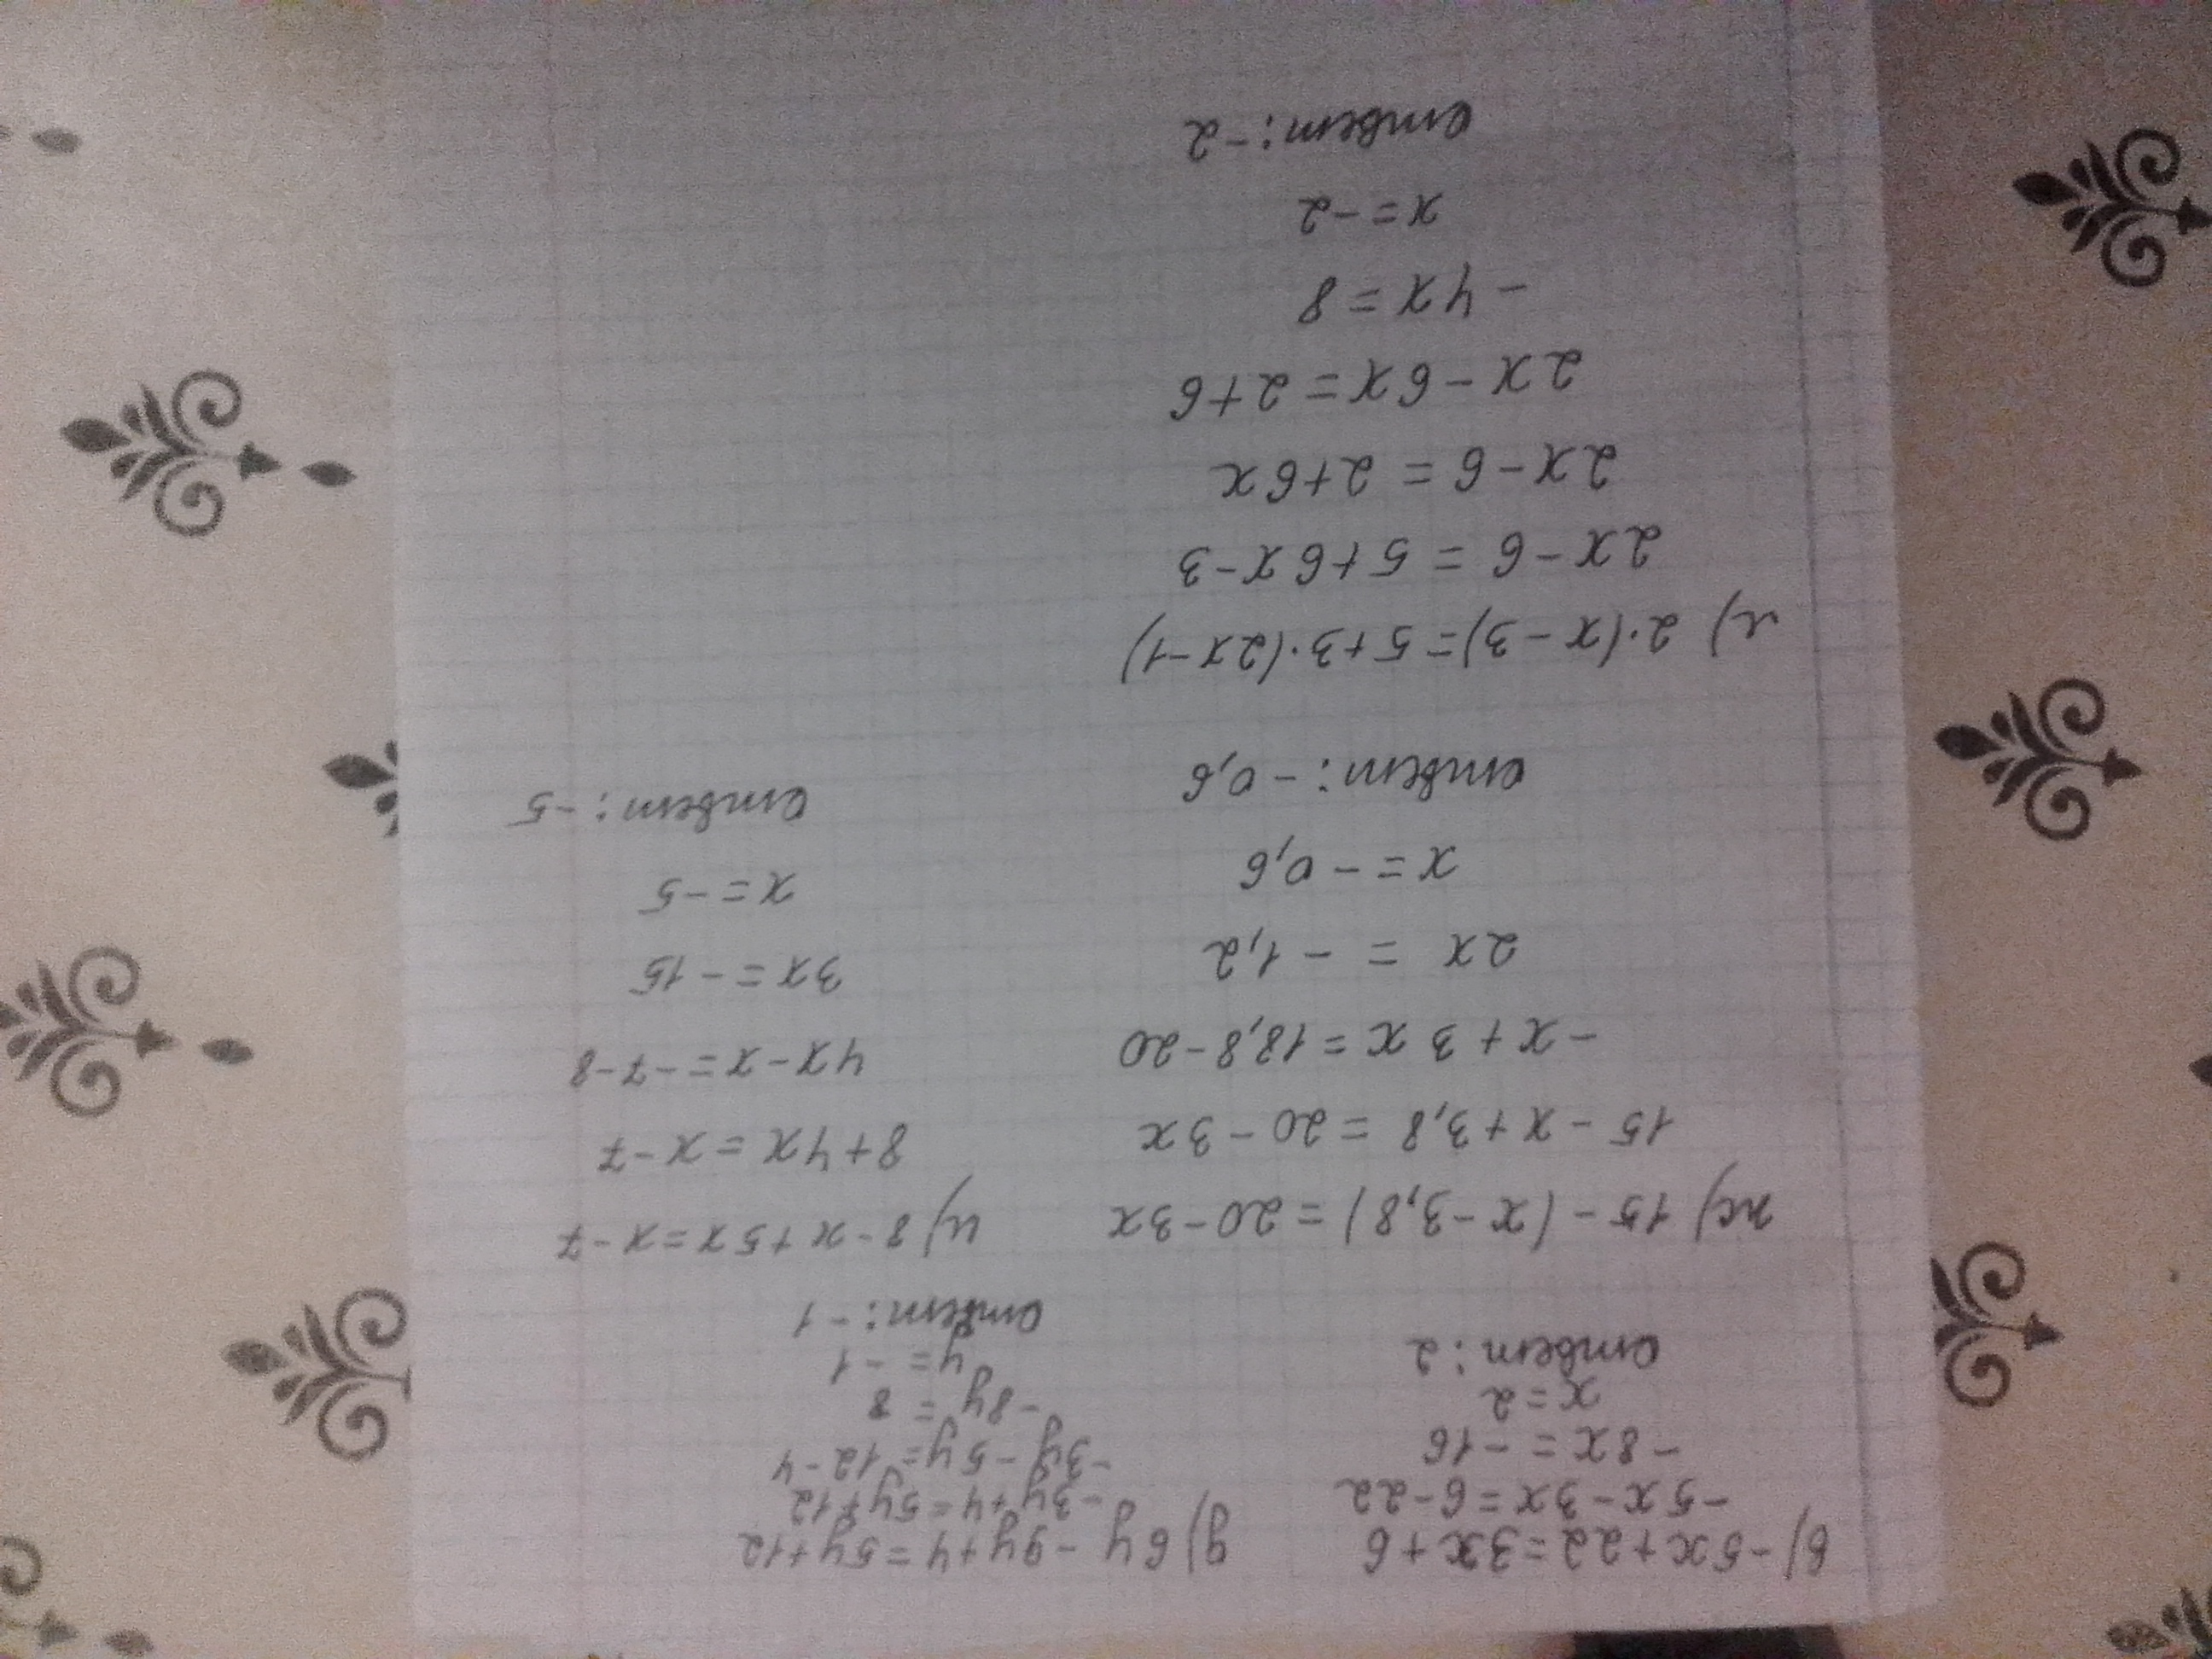 б) -5x+22=3x+6
-5x-3x=6-22
-8x=-16
x=2
ответ: 2
д) 6y-9y+4=5y+12
-3y+4=5y+12
-3y-5y=12-4
-8y=8
y=-1
ответ: -1
ж) 15-(x-3,8)=20-3x
15-x+3,8=20-3x
-x+3x=18,8-20
2x=-1,2
x=-0,6
ответ: -0,6
и) 8-x+5x=x-7
8+4x=x-7
4x-x=-7-8
3x=-15
x=-5
ответ: -5
л) 2·(x-3)=5+3·(2x-1)
2x-6=5+6x-3
2x-6=2+6x
2x-6x=2+6
-4x=8
x=-2
ответ: -2